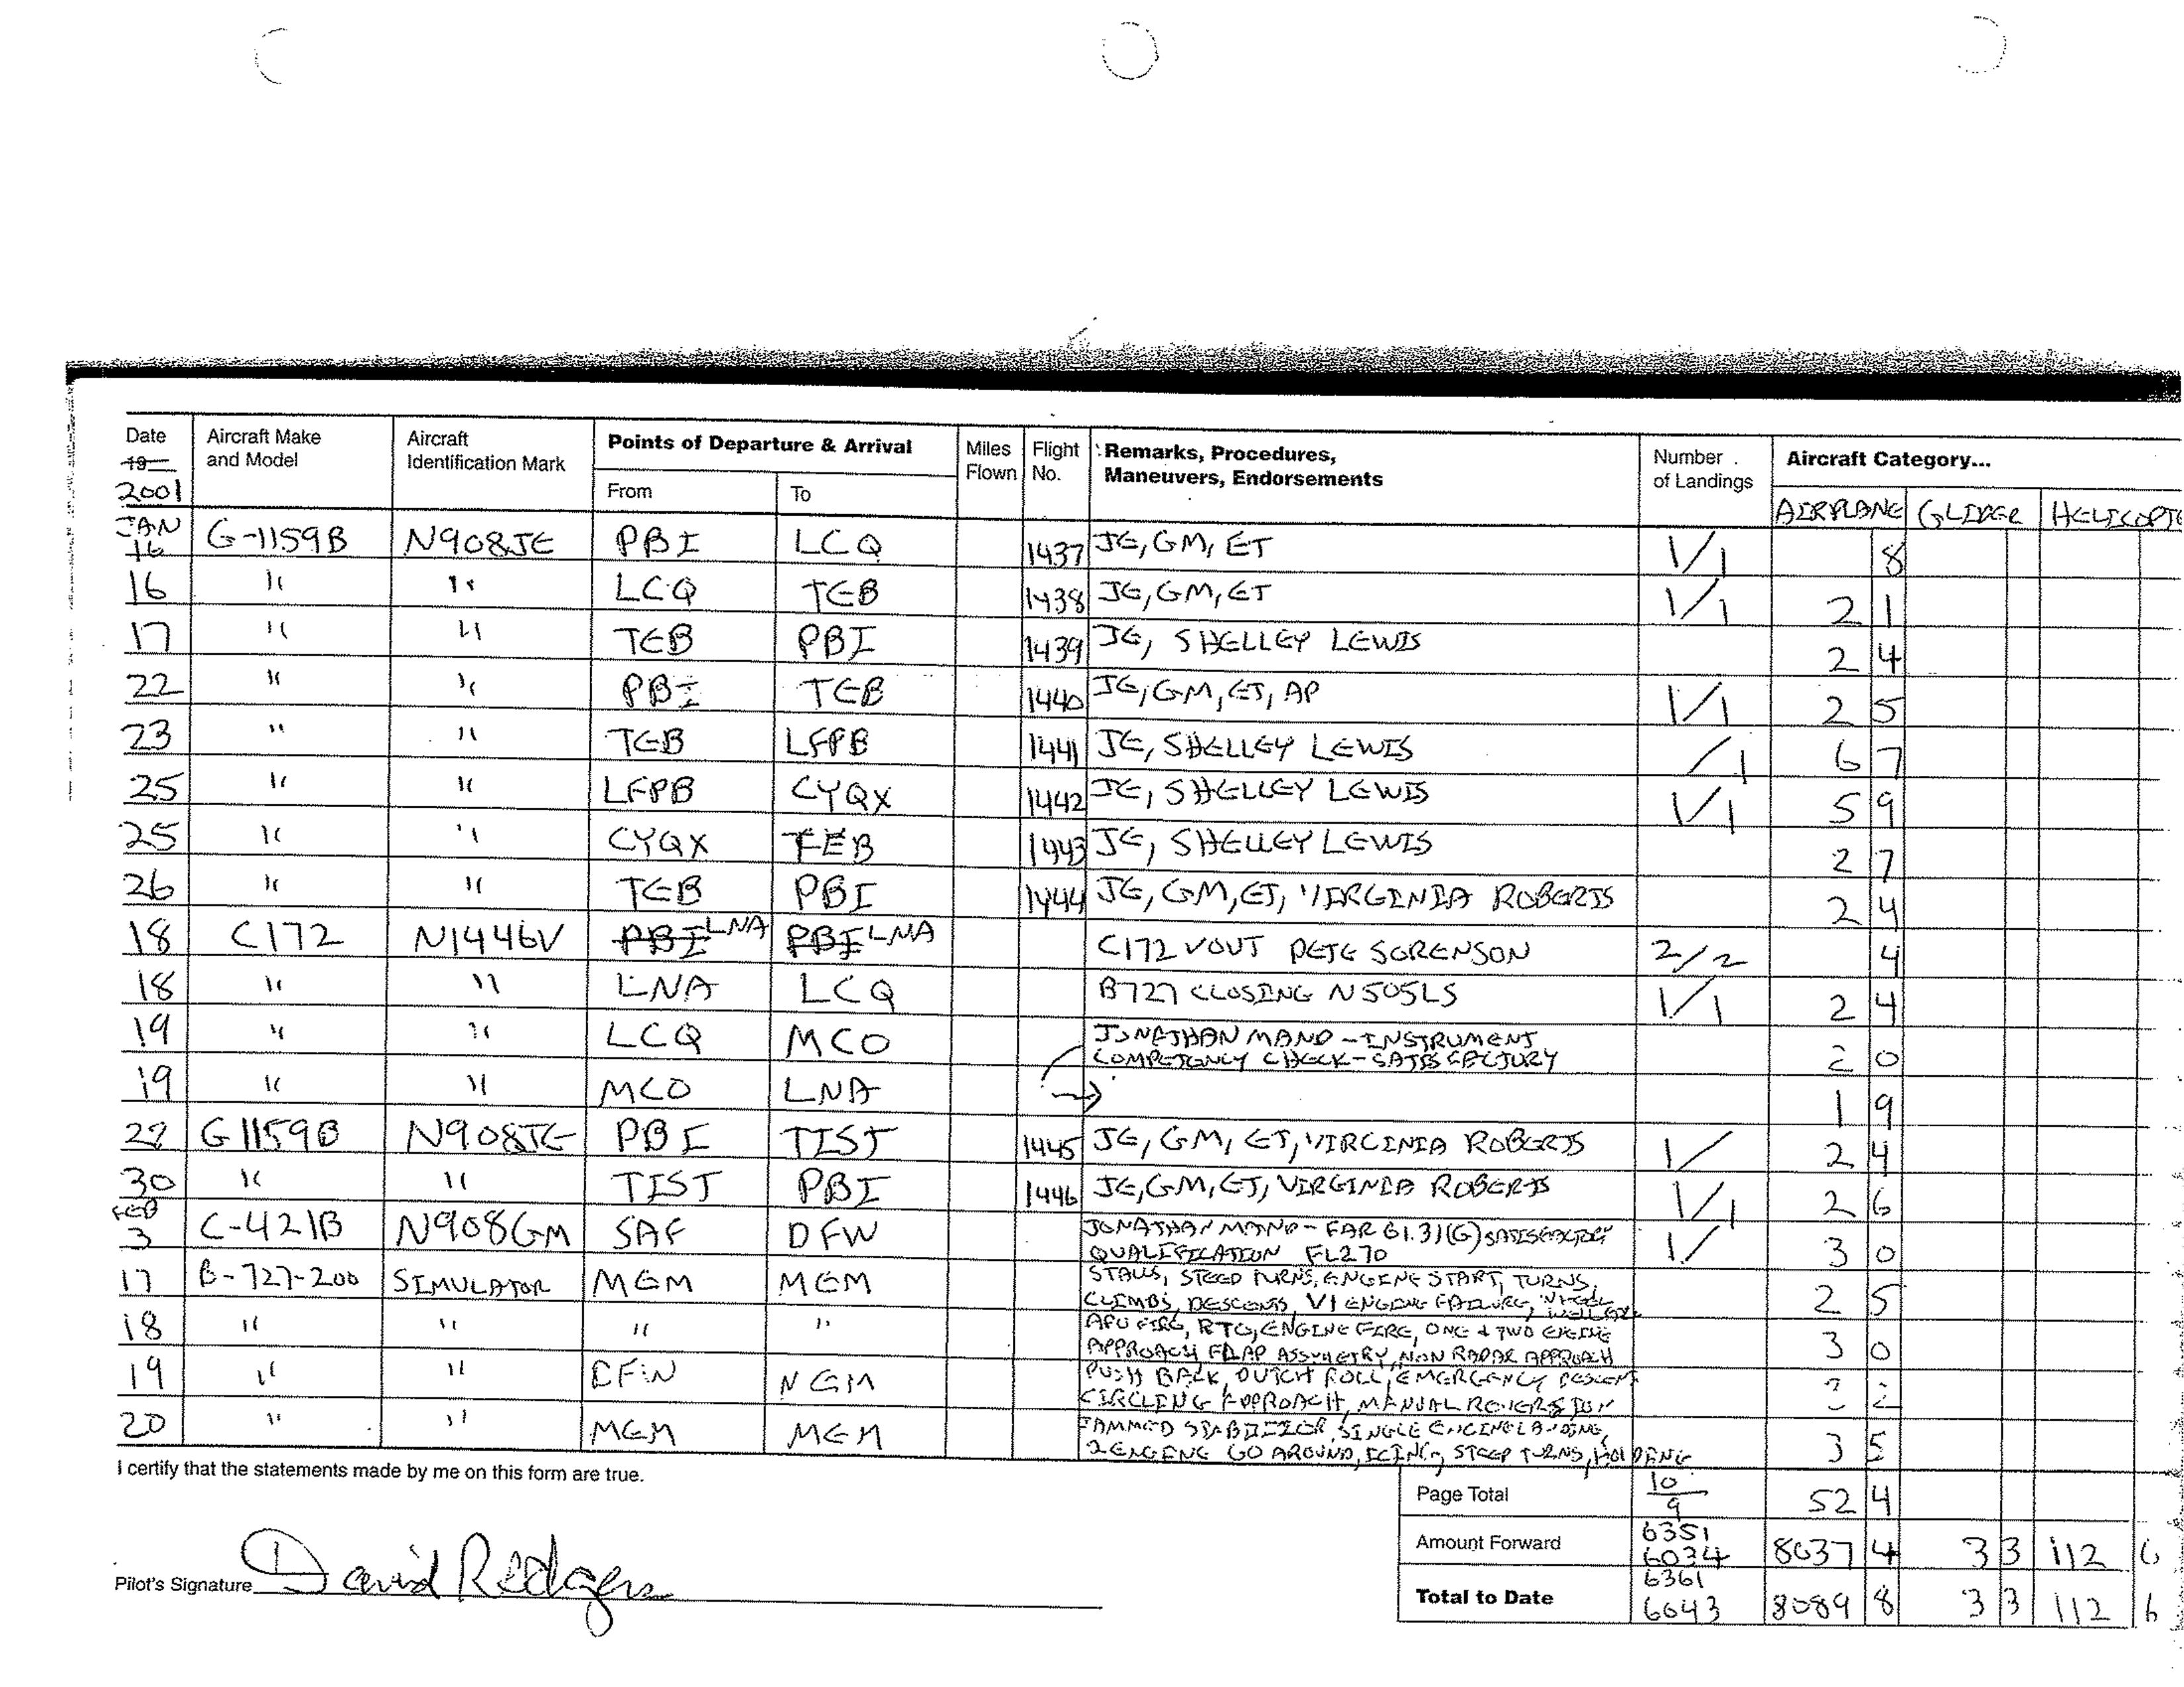 Date Aircraft Make and Model Aircraft Identification Mark Points of Departure & Arrival Miles Flown Flight No. Remarks, Procedures, Maneuvers, Endorsements Number of Landings Aircraft Category...
19
2001 From To AIRPLANE GLIDER HELICOPTE
JAN 16 G-1159B N908JE PBI LCQ 1437 JE, GM, ET 1/1 8
16 " " LCQ TEB 1438 JE, GM, ET 1/1 2 1
17 " " TEB PBI 1439 JE, SHELLEY LEWIS 2 4
22 " " PBI TEB 1440 JE, GM, ET, AP 1/1 2 5
23 " " TEB LFPB 1441 JE, SHELLEY LEWIS /1 6 7
25 " " LFPB CYQX 1442 JE, SHELLEY LEWIS 1/1 5 9
25 " " CYQX TEB 1443 JE, SHELLEY LEWIS 2 7
26 " " TEB PBI 1444 JE, GM, ET, VIRGINIA ROBERTS 2 4
18 C172 N1446V PBI LNA PBI LNA C172 VOUT PETE SORENSON 2/2 4
18 " " LNA LCQ B727 CLOSING N505LS 1/1 2 4
19 " " LCQ MCO JONATHAN MANO - INSTRUMENT
COMPETENCY CHECK - SATISFACTORY 2 0
19 " " MCO LNA → 1 9
G1159B N908JE PBI TIST 1445 JE, GM, ET, VIRGINIA ROBERTS 1/ 2 4
30 " " TIST PBI 1446 JE, GM, ET, VIRGINIA ROBERTS 1/1 2 6
FEB 3 C-421B N908GM SAF DFW JONATHAN MANO - FAR 61.31(G) SATISFACTORY
QUALIFICATION FL270 1/ 3 0
17 B-727-200 SIMULATOR MEM MEM STALLS, STEEP TURNS, ENGINE START, TURNS,
CLIMBS, DESCENTS, V1 ENGINE FAILURE, 2 5
18 " " " " APU FIRE, RTO, ENGINE FIRE, ONE + TWO ENGINE
APPROACH FLAP ASSYMETRY, NON RADAR APPROACH 3 0
19 " " PUSH BACK, DUTCH ROLL, EMERGENCY DESCENT
CIRCLING APPROACH, MANUAL REVERSION
20 " " MEM MEM JAMMED STABILIZER, SINGLE ENGINE LANDING,
2 ENGINE GO AROUND, ICING, STEEP TURNS, HOLDING 3 5
I certify that the statements made by me on this form are true.
Page Total 10 9 52 4
Amount Forward 6351 6034 8037 4 3 3 112 6
Pilot's Signature David Rodgers
Total to Date 6361 6043 8089 8 3 3 112 6